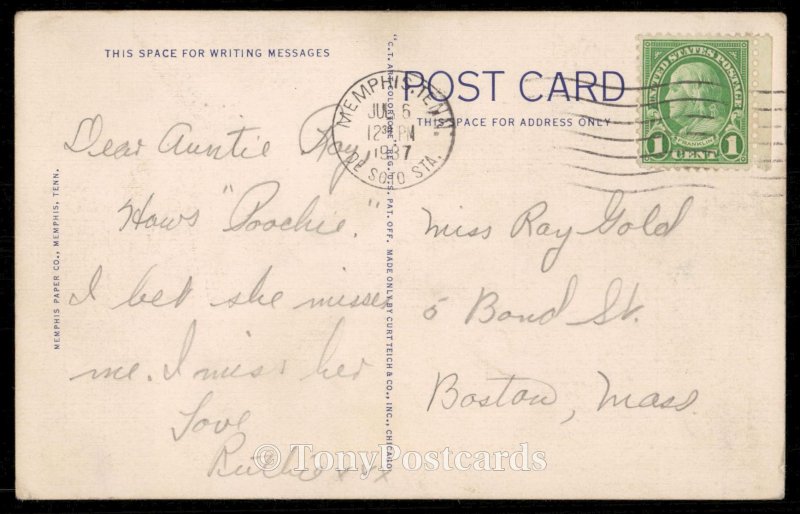 THIS SPACE FOR WRITING MESSAGES
POST CARD
THIS SPACE FOR ADDRESS ONLY
UNITED STATES POSTAGE
FRANKLIN
1 CENT 1
MEMPHIS, TENN.
6
12 PM
1937
DE SOTO STA.
Dear Auntie Ray,
Hows "Poochie."
I bet she misses
me. I miss her
Love
Miss Ray Gold
5 Bond St.
Boston, Mass.
MEMPHIS PAPER CO., MEMPHIS, TENN.
"C.T. ART-COLORTONE" REG. U.S. PAT. OFF. MADE ONLY BY CURT TEICH & CO., INC., CHICAGO
© TonyPostcards